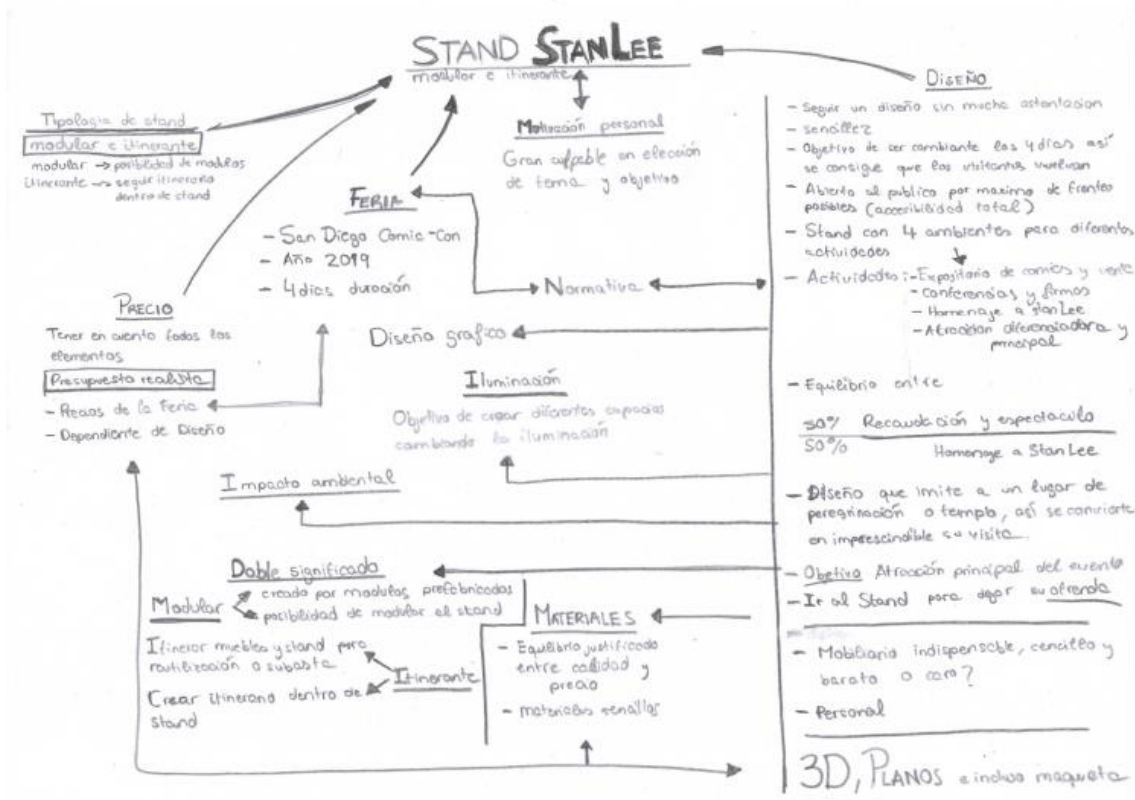 STAND STANLEE
modular e itinerante
Tipologia de stand
modular e itinerante
modular → posibilidad de modulos
itinerante → seguir itinerario
dentro de stand
Motivación personal
Gran culpable en elección
de tema y objetivo
FERIA
- San Diego Comic-Con
- Año 2019
- 4 dias duración
Normativa
PRECIO
Tener en cuenta todos los
elementos
Presupuesto realista
- Precios de la Feria
- Dependiente de Diseño
Diseño grafico
Iluminación
Objetivo de crear diferentes espacios
cambiando la iluminación
Impacto ambiental
Doble significado
Modular
creado por modulos prefabricados
posibilidad de modular el stand
Itinerar muebles y stand para
reutilización o subasta
Itinerante
Crear itinerario dentro de
stand
MATERIALES
- Equilibrio justificado
entre calidad y
precio
- materiales sencillos
DISEÑO
- Seguir un diseño sin mucha ostentacion
- sencillez
- Objetivo de ser cambiante los 4 dias así
se consigue que los visitantes vuelvan
- Abierto al publico por maximo de frentes
posibles (accesibilidad total)
- Stand con 4 ambientes para diferentes
actividades
- Actividades: - Expositorio de comics y venta
- Conferencias y firmas
- Homenaje a StanLee
- Atracción diferenciadora y
principal
- Equilibrio entre
50% Recaudación y espectaculo
50% Homenaje a StanLee
- Diseño que imite a un lugar de
peregrinación o templo, así se convierte
en imprescindible su visita.
- Obetivo Atracción principal del evento
- Ir al Stand para dejar su ofrenda
- Mobiliario indispensable, cencillo y
barato o caro?
- Personal
3D, PLANOS e incluso maqueta